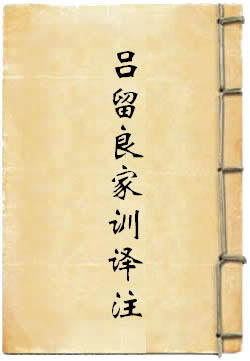 吕留良家训译注